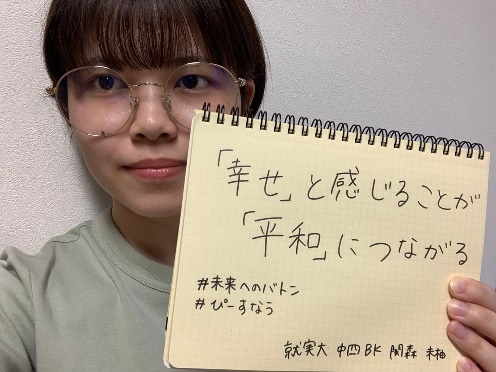 「幸せ」と感じることが
「平和」につながる
#未来へのバトン
#ぴーすなう
就実大 中四BK 関森 未柚